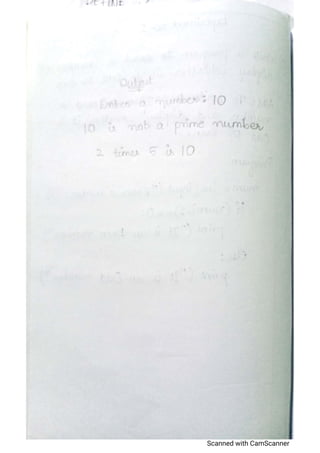 Output
Enter a number: 10
10 is not a prime number
2 times 5 is 10
Scanned with CamScanner